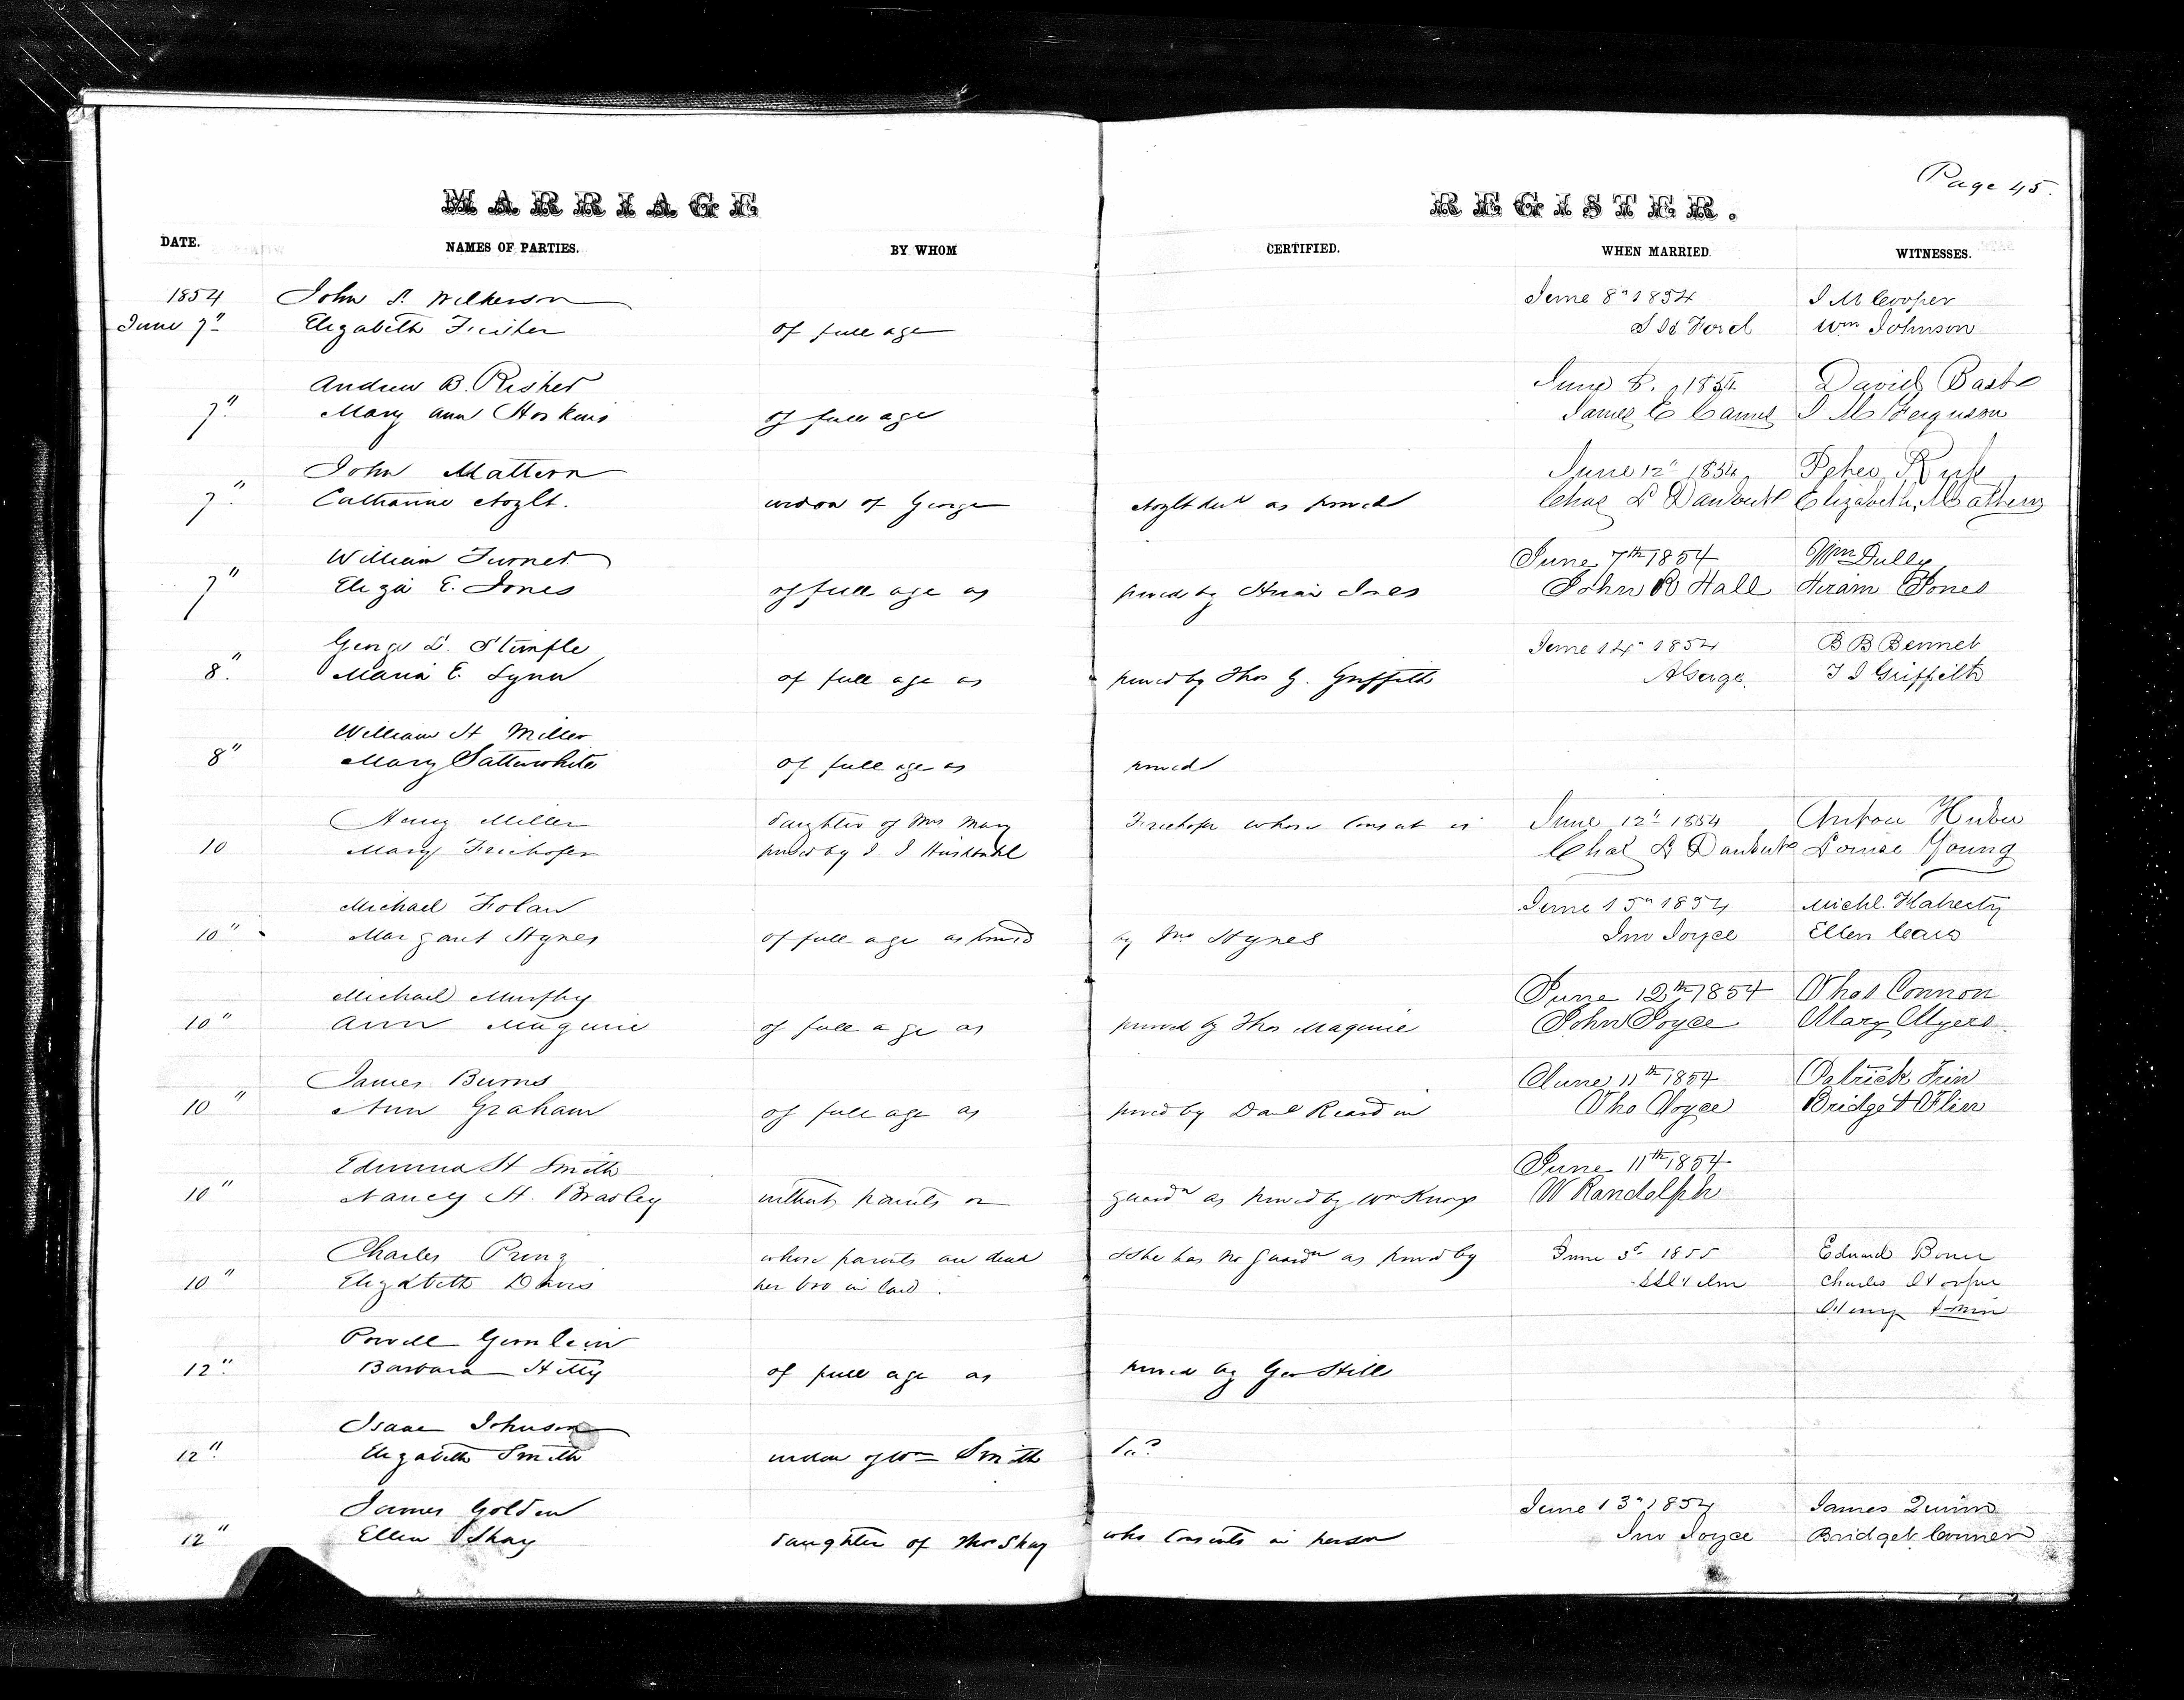 Page 45.
MARRIAGE REGISTER.
DATE. NAMES OF PARTIES. BY WHOM CERTIFIED. WHEN MARRIED. WITNESSES.
1854 John S. Wilkerson June 8" 1854 J M Cooper
June 7" Elizabeth of full age Ford Wm Johnson
Andrew B. Risher June 8. 1854 David
7" Mary Ann Hoskins of full age James E Carnes J M Ferguson
John Mattern June 12" 1854 Peter
7" Catharine widow of George as proved Chas L Elizabeth Mathern
William Turner June 7th 1854 Wm Dully
7" Eliza E. Jones of full age as proved by Hiram Jones John R Hall Hiram Jones
George L. Stimple June 14" 1854 B B Bennet
8". Maria E. Lynn of full age as proved by Thos G. Griffith T J Griffith
William H Miller
8" Mary Satterwhite of full age as proved
Henry Miller daughter of Mrs Mary whose consent is June 12" 1854 Anton Huber
10 Mary Friehofer proved by J. J Chas L Louise Young
Michael Folan June 15" 1854 Michl. Flaherty
10" Margaret Hynes of full age as proved by Hynes Jno Joyce Ellen
Michael Murphy June 12th 1854 Thos Connon
10" Ann Maguire of full age as proved by Thos Maguire John Joyce Mary Myers.
James Burns June 11th 1854 Patrick
10" Ann Graham of full age as proved by Danl Tho Joyce Bridget Flin
Edmund H Smith June 11th 1854
10" Nancy H. without parents or guardn as proved by Wm Knox W Randolph
Charles Prinz whose parents are dead & she has no guardn as proved by June 3d 1855 Edward
10" Elizabeth Davis her bro in law. Charles
Henry
Powell
12". Barbara of full age as proved by Geo
Isaac Johnson
12". Elizabeth Smith widow of Wm Smith
James Golden June 13" 1854 James Quinn
12" Ellen Shay daughter of Thos Shay who consents in person Jno Joyce Bridget Conner